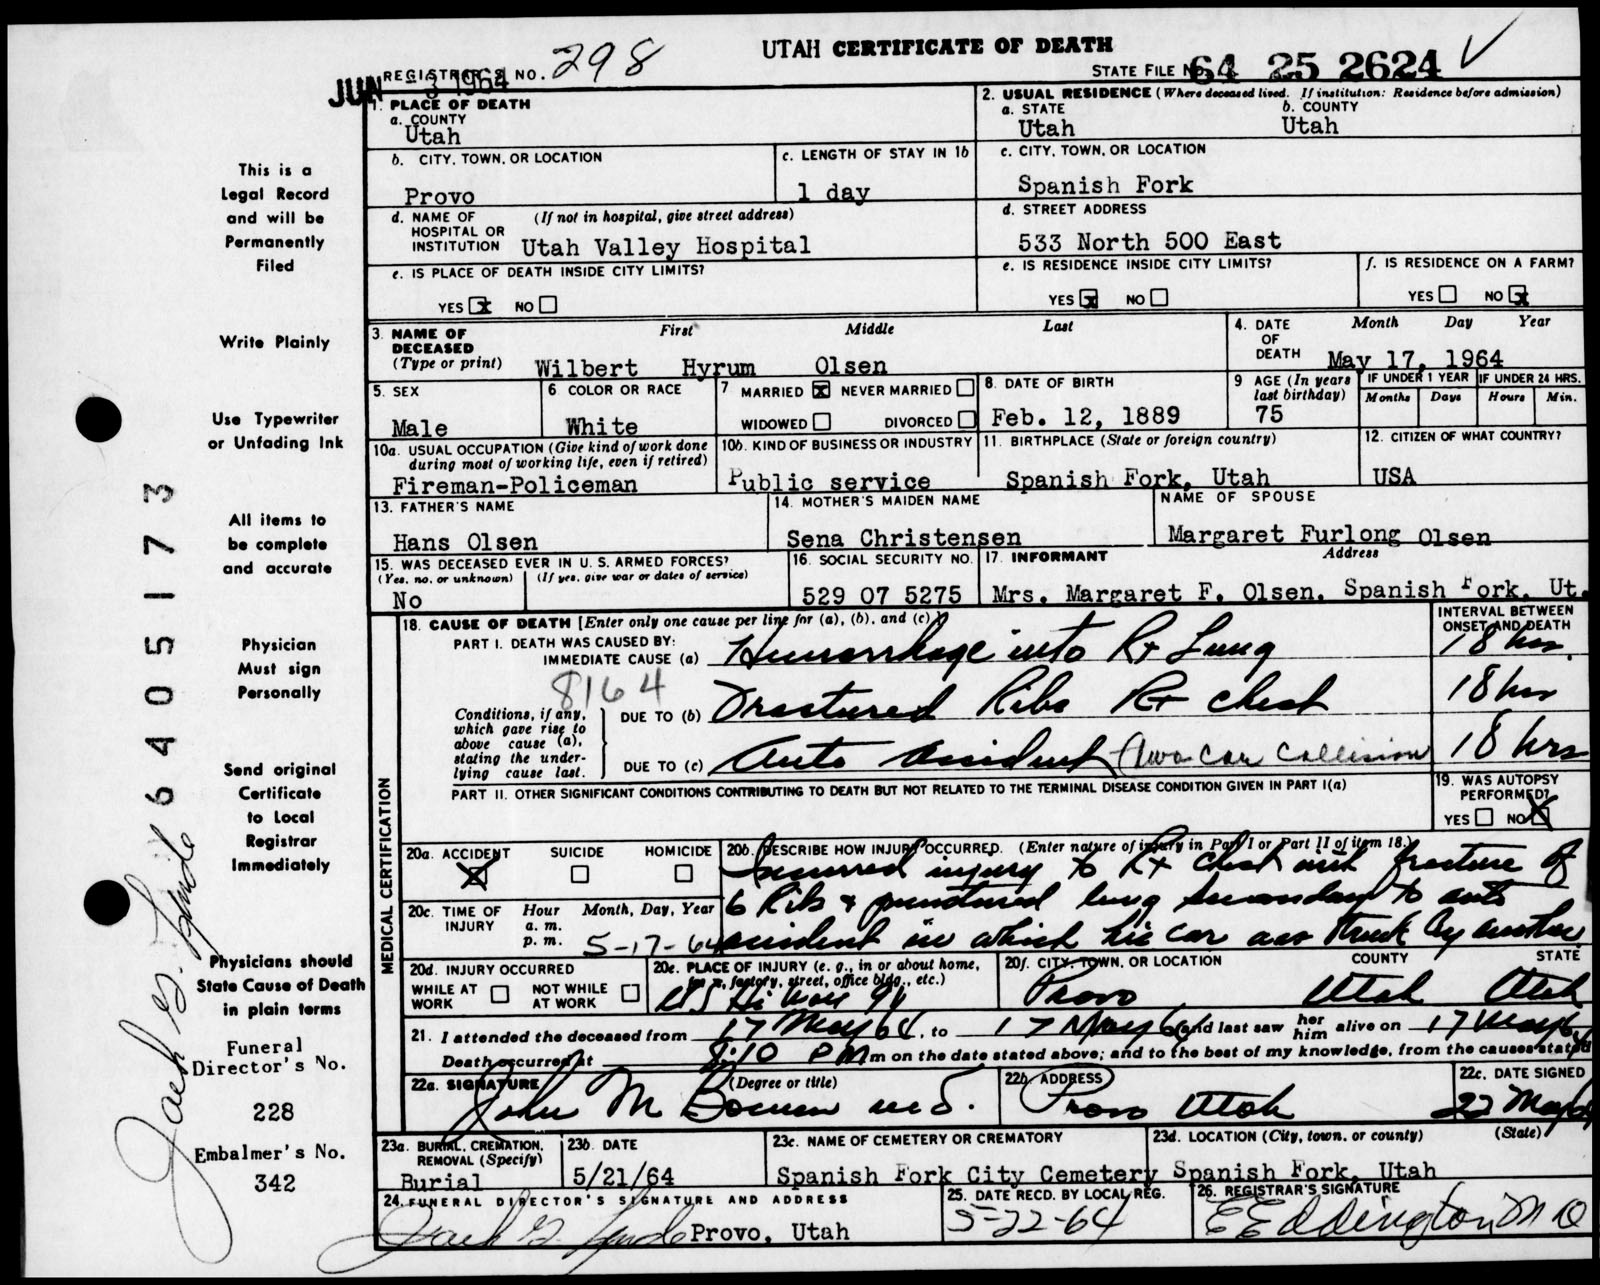 UTAH CERTIFICATE OF DEATH
REGISTRAR'S NO. 298
STATE FILE NO. 64 25 2624 ✓
JUN - 3 1964
1. PLACE OF DEATH
a. COUNTY
Utah
2. USUAL RESIDENCE (Where deceased lived. If institution: Residence before admission)
a. STATE b. COUNTY
Utah Utah
b. CITY, TOWN, OR LOCATION
Provo
c. LENGTH OF STAY IN 1b
1 day
c. CITY, TOWN, OR LOCATION
Spanish Fork
d. NAME OF HOSPITAL OR INSTITUTION (If not in hospital, give street address)
Utah Valley Hospital
d. STREET ADDRESS
533 North 500 East
e. IS PLACE OF DEATH INSIDE CITY LIMITS?
YES x NO
e. IS RESIDENCE INSIDE CITY LIMITS?
YES x NO
f. IS RESIDENCE ON A FARM?
YES NO x
3. NAME OF DECEASED (Type or print)
First Middle Last
Wilbert Hyrum Olsen
4. DATE OF DEATH
Month Day Year
May 17, 1964
5. SEX
Male
6 COLOR OR RACE
White
7 MARRIED x NEVER MARRIED
WIDOWED DIVORCED
8. DATE OF BIRTH
Feb. 12, 1889
9 AGE (In years last birthday)
75
IF UNDER 1 YEAR IF UNDER 24 HRS.
Months Days Hours Min.
10a. USUAL OCCUPATION (Give kind of work done during most of working life, even if retired)
Fireman-Policeman
10b. KIND OF BUSINESS OR INDUSTRY
Public service
11. BIRTHPLACE (State or foreign country)
Spanish Fork, Utah
12. CITIZEN OF WHAT COUNTRY?
USA
13. FATHER'S NAME
Hans Olsen
14. MOTHER'S MAIDEN NAME
Sena Christensen
NAME OF SPOUSE
Margaret Furlong Olsen
15. WAS DECEASED EVER IN U. S. ARMED FORCES?
(Yes, no, or unknown) (If yes, give war or dates of service)
No
16. SOCIAL SECURITY NO.
529 07 5275
17. INFORMANT Address
Mrs. Margaret F. Olsen, Spanish Fork, Ut.
18. CAUSE OF DEATH [Enter only one cause per line for (a), (b), and (c)]
INTERVAL BETWEEN ONSET AND DEATH
PART I. DEATH WAS CAUSED BY:
IMMEDIATE CAUSE (a) Hemorrhage into Rt Lung 18 hrs.
8164
Conditions, if any, which gave rise to above cause (a), stating the underlying cause last.
DUE TO (b) Fractured Ribs Rt chest 18 hrs
DUE TO (c) Auto accident (Two car collision 18 hrs
PART II. OTHER SIGNIFICANT CONDITIONS CONTRIBUTING TO DEATH BUT NOT RELATED TO THE TERMINAL DISEASE CONDITION GIVEN IN PART I(a)
19. WAS AUTOPSY PERFORMED?
YES NO X
MEDICAL CERTIFICATION
20a. ACCIDENT SUICIDE HOMICIDE
X
20b. DESCRIBE HOW INJURY OCCURRED. (Enter nature of injury in Part I or Part II of item 18.)
Incurred injury to Rt chest with fracture of
6 Ribs & punctured lung secondary to auto
accident in which his car was struck by another
20c. TIME OF INJURY
Hour Month, Day, Year
a. m.
p. m. 5-17-64
20d. INJURY OCCURRED
WHILE AT WORK NOT WHILE AT WORK
20e. PLACE OF INJURY (e. g., in or about home, farm, factory, street, office bldg., etc.)
US Hi Way 91
20f. CITY, TOWN, OR LOCATION COUNTY STATE
Provo Utah Utah
21. I attended the deceased from 17 May 64, to 17 May 64 and last saw her him alive on 17 May 64
Death occurred at 8:10 PM m on the date stated above; and to the best of my knowledge, from the causes stated
22a. SIGNATURE (Degree or title)
John M Bowen MD.
22b. ADDRESS
Provo Utah
22c. DATE SIGNED
22 May 64
23a. BURIAL, CREMATION, REMOVAL (Specify)
Burial
23b. DATE
5/21/64
23c. NAME OF CEMETERY OR CREMATORY
Spanish Fork City Cemetery
23d. LOCATION (City, town, or county) (State)
Spanish Fork, Utah
24. FUNERAL DIRECTOR'S SIGNATURE AND ADDRESS
Provo, Utah
25. DATE RECD. BY LOCAL REG.
5-22-64
26. REGISTRAR'S SIGNATURE
E E Eddington M D
This is a
Legal Record
and will be
Permanently
Filed
Write Plainly
Use Typewriter
or Unfading Ink
All items to
be complete
and accurate
Physician
Must sign
Personally
Send original
Certificate
to Local
Registrar
Immediately
Physicians should
State Cause of Death
in plain terms
Funeral
Director's No.
228
Embalmer's No.
342
64051173